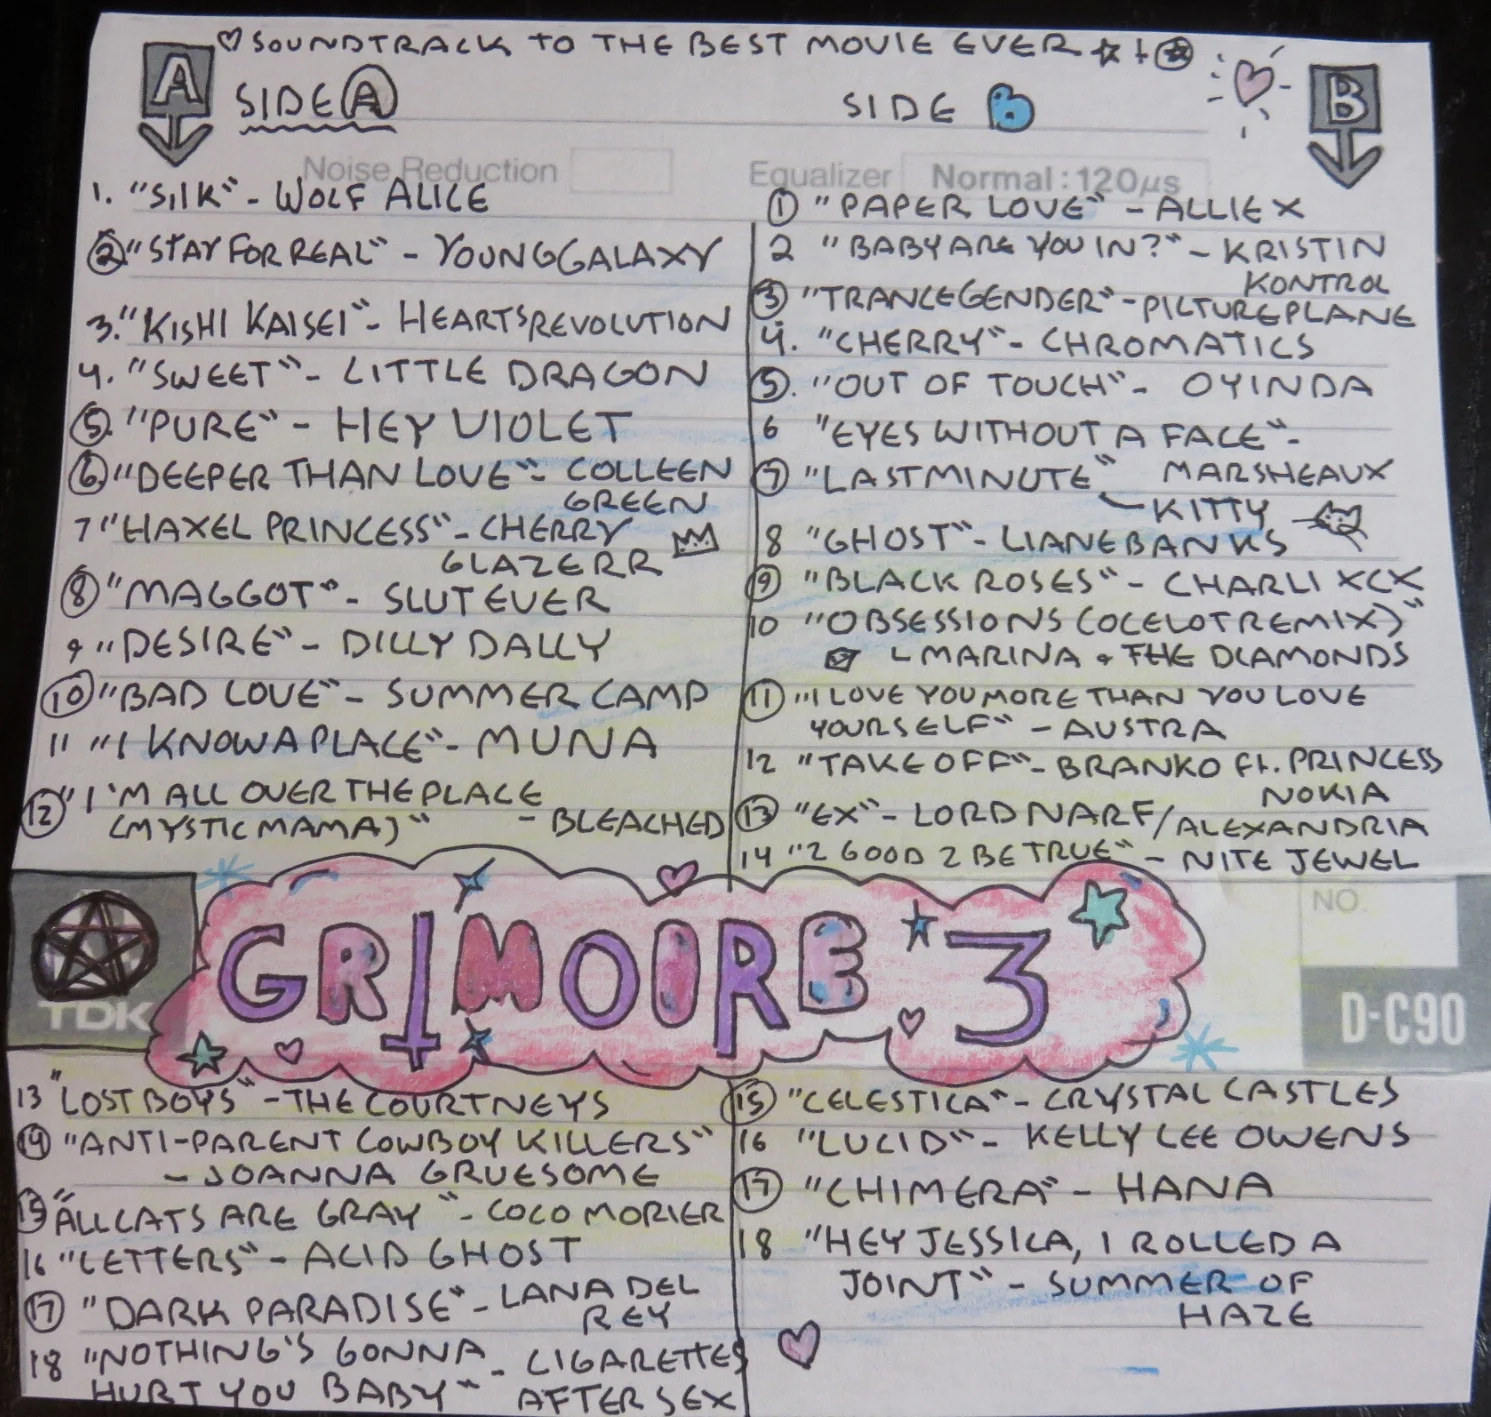 ♡ SOUNDTRACK TO THE BEST MOVIE EVER ☆ + ☆
A
SIDE A
1. "SILK" - WOLF ALICE
2 "STAY FOR REAL" - YOUNG GALAXY
3. "KISHI KAISEI" - HEARTSREVOLUTION
4. "SWEET" - LITTLE DRAGON
5. "PURE" - HEY VIOLET
6 "DEEPER THAN LOVE" - COLLEEN
GREEN
7 "HAXEL PRINCESS" - CHERRY
GLAZERR
8 "MAGGOT" - SLUTEVER
9 "DESIRE" - DILLY DALLY
10 "BAD LOVE" - SUMMER CAMP
11 "I KNOW A PLACE" - MUNA
12 "I'M ALL OVER THE PLACE
(MYSTIC MAMA)" - BLEACHED
SIDE B
B
Noise Reduction
Equalizer Normal : 120µs
1 "PAPER LOVE" - ALLIE X
2 "BABY ARE YOU IN?" - KRISTIN
KONTROL
3 "TRANCEGENDER" - PICTUREPLANE
4. "CHERRY" - CHROMATICS
5. "OUT OF TOUCH" - OYINDA
6 "EYES WITHOUT A FACE" -
MARSHEAUX
7 "LAST MINUTE"
- KITTY
8 "GHOST" - LIANE BANKS
9 "BLACK ROSES" - CHARLI XCX
10 "OBSESSIONS (OCELOT REMIX)"
- MARINA + THE DIAMONDS
11 "I LOVE YOU MORE THAN YOU LOVE
YOURSELF" - AUSTRA
12 "TAKE OFF" - BRANKO ft. PRINCESS
NOKIA
13 "EX" - LORD NARF/ALEXANDRIA
14 "2 GOOD 2 BE TRUE" - NITE JEWEL
TDK
GRIMOIRE 3
NO.
D-C90
13 "LOST BOYS" - THE COURTNEYS
14 "ANTI-PARENT COWBOY KILLERS"
- JOANNA GRUESOME
15 "ALL CATS ARE GRAY" - COCO MORIER
16 "LETTERS" - ACID GHOST
17 "DARK PARADISE" - LANA DEL
REY
18 "NOTHING'S GONNA
HURT YOU BABY" - CIGARETTES
AFTER SEX
15 "CELESTICA" - CRYSTAL CASTLES
16 "LUCID" - KELLY LEE OWENS
17 "CHIMERA" - HANA
18 "HEY JESSICA, I ROLLED A
JOINT" - SUMMER OF
HAZE